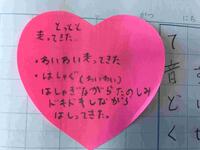 とっとと
走ってきた。
・わいわい走ってきた
・はしゃぐ(わいわい)
はしゃぎながらたのしみ
ドキドキしながら
はしってきた。
がつ
にち
て
音
ど
く
せ